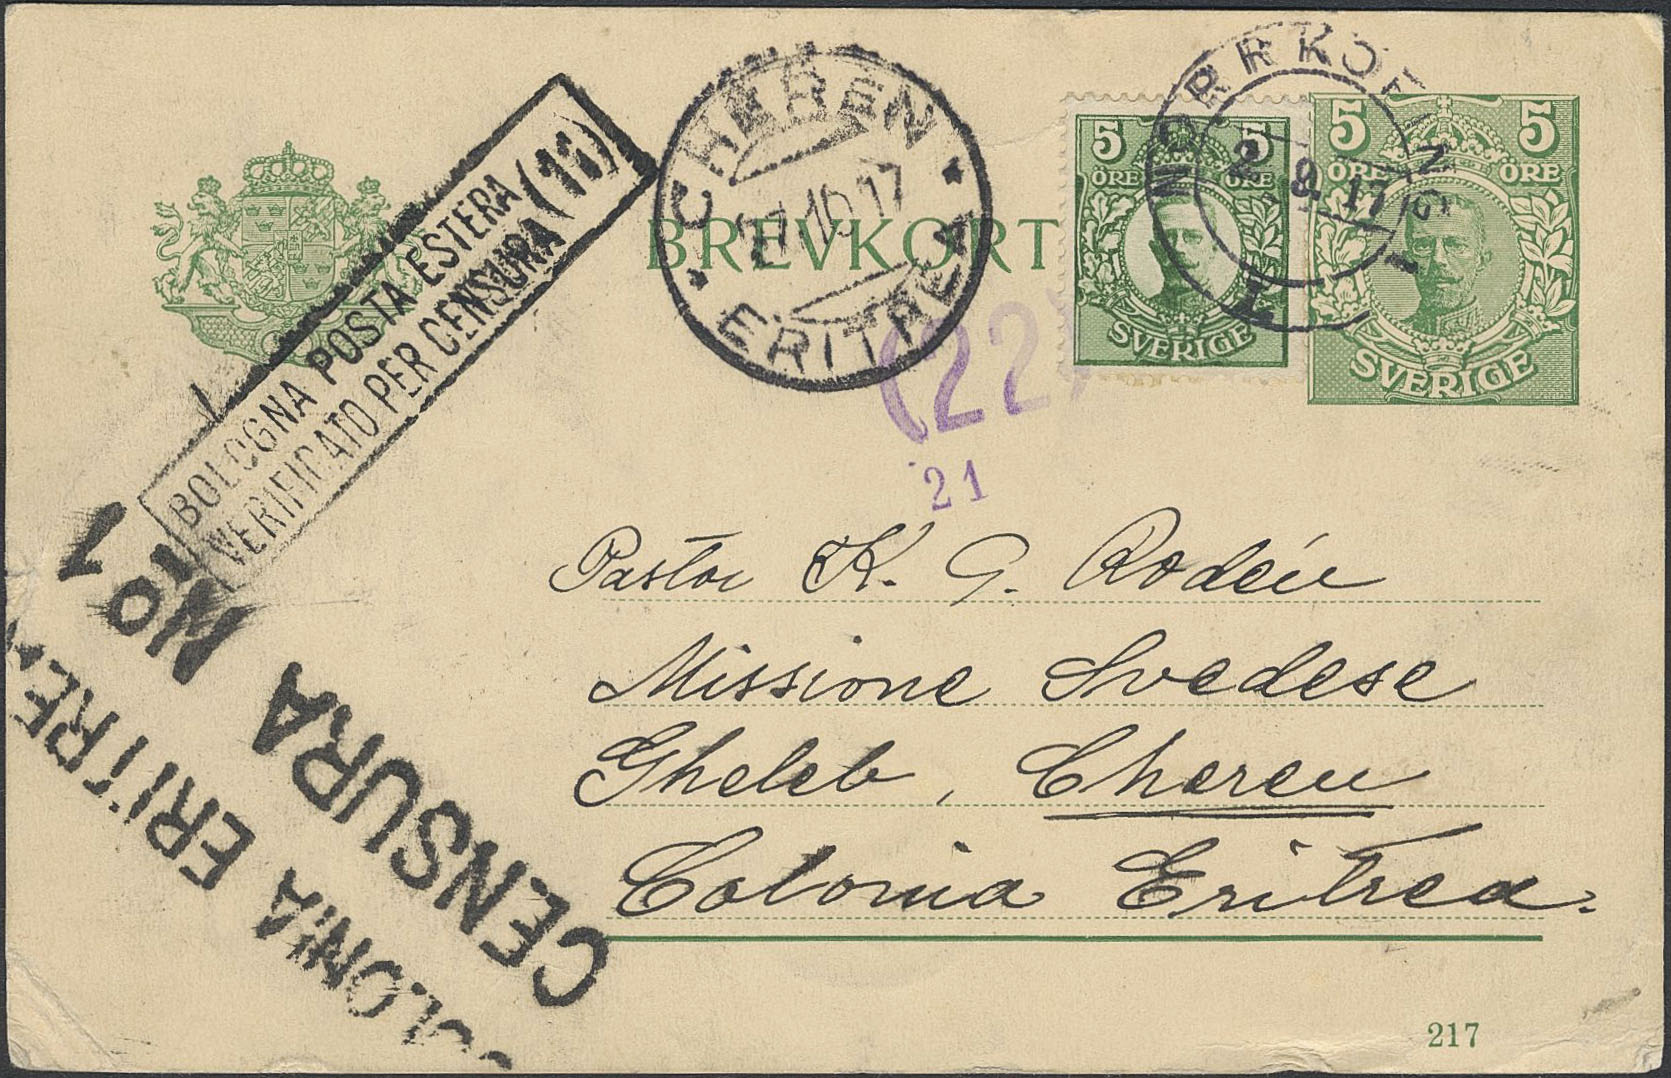 BREVKORT
5 5
ÖRE ÖRE
SVERIGE
5 5
ÖRE ÖRE
SVERIGE
NORRKÖPING 1
2 8 17
L
CHEREN
27.10.17
ERITREA
BOLOGNA POSTA ESTERA
VERIFICATO PER CENSURA (11)
(22)
21
COLONIA ERITREA
CENSURA No 1
Pastor K. G. Rodén
Missione Svedese
Gheleb, Cheren
Colonia Eritrea.
217